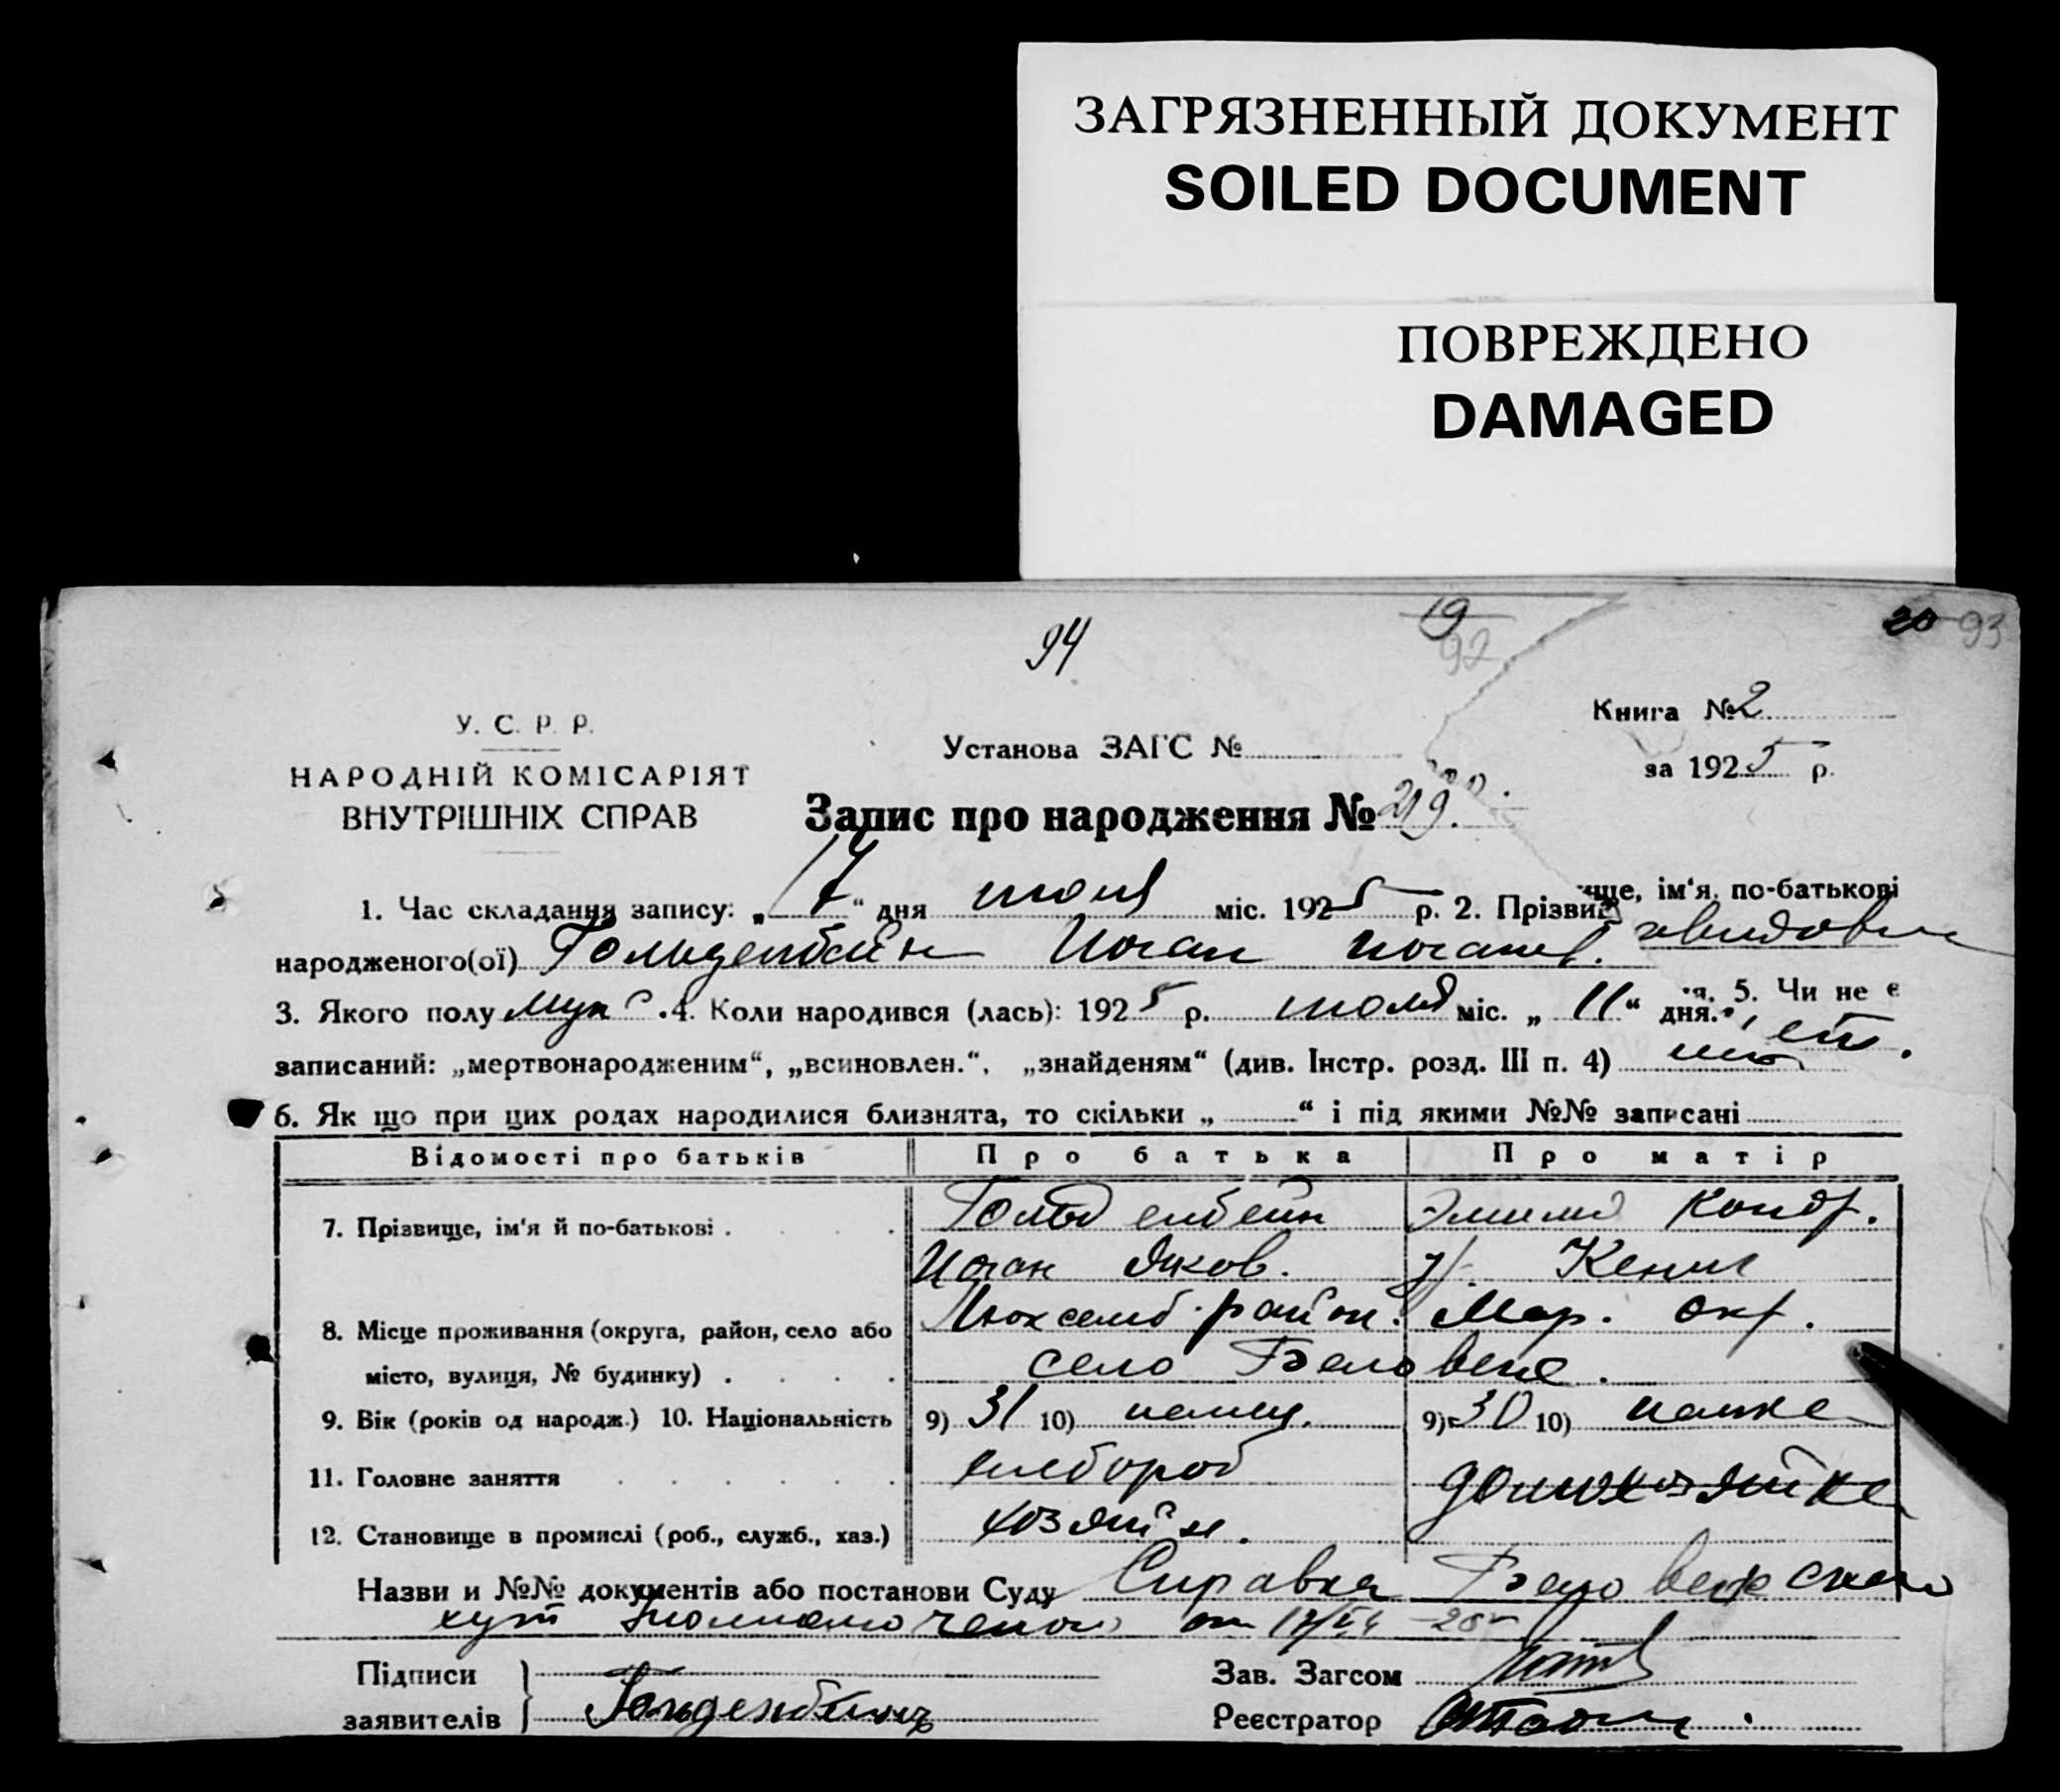 ЗАГРЯЗНЕННЫЙ ДОКУМЕНТ
SOILED DOCUMENT
ПОВРЕЖДЕНО
DAMAGED
94
19
92
20 93
Книга № 2
за 1925 р.
У. С. Р. Р.
НАРОДНІЙ КОМІСАРІЯТ
ВНУТРІШНІХ СПРАВ
Установа ЗАГС №
Запис про народження № 219.
1. Час складання запису: „17“ дня июля міс. 1925 р. 2. Прізвище, ім'я, по-батькові
народженого(ої) Гольденбейн Иоган Иоганов.
3. Якого полу муж. 4. Коли народився (лась): 1925 р. июля міс. „11“ дня. 5. Чи не є
записаний: „мертвонародженим“, „всиновлен.“, „знайденям“ (див. Інстр. розд. III п. 4) нет.
6. Як що при цих родах народилися близнята, то скільки „ “ і під якими №№ записані
Відомості про батьків Про батька Про матір
7. Прізвище, ім'я й по-батькові Гольденбейн Эмилия Кондр.
Иоган Яков. ур. Кениг
8. Місце проживання (округа, район, село або Люксемб. район. Мар. окр.
місто, вулиця, № будинку) село Беловеж.
9. Вік (років од народж.) 10. Національність 9) 31 10) немец. 9) 30 10) немке
11. Головне заняття хлебороб домохозяйка
12. Становище в промислі (роб., служб., хаз.) хозяин.
Назви и №№ документів або постанови Суду Справка Беловежского
хут уполномоченого от
Підписи
заявителів Гольденбейнъ
Зав. Загсом
Реєстратор